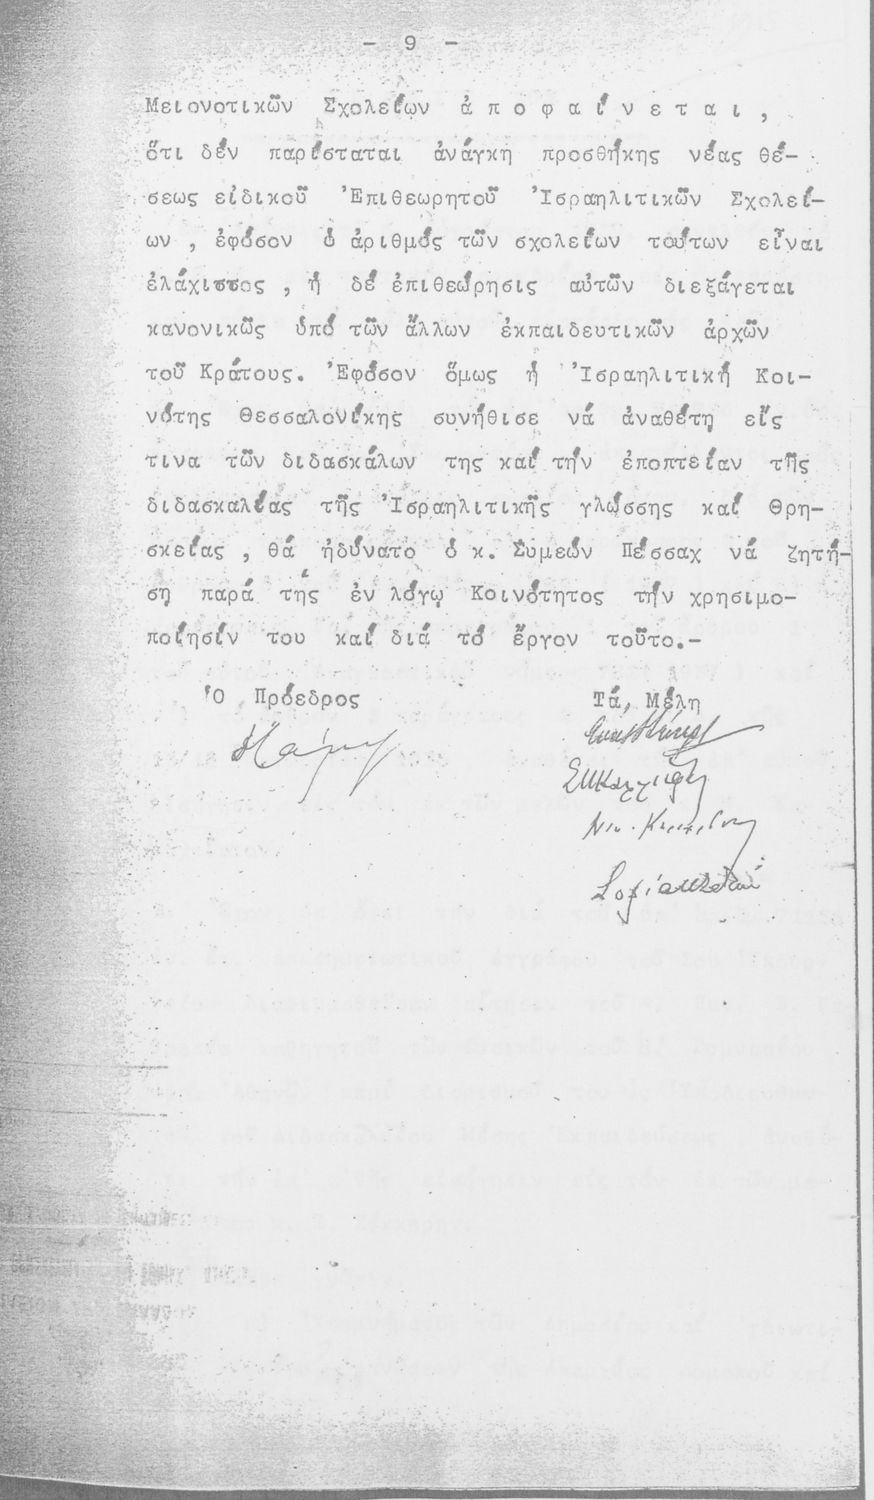 - 9 -
Μειονοτικῶν Σχολείων ἀ π ο φ α ί ν ε τ α ι ,
ὅτι δέν παρίσταται ἀνάγκη προσθήκης νέας θέ-
σεως εἰδικοῦ Ἐπιθεωρητοῦ Ἰσραηλιτικῶν Σχολεί-
ων , ἐφόσον ὁ ἀριθμός τῶν σχολείων τούτων εἶναι
ἐλάχιστος , ἡ δέ ἐπιθεώρησις αὐτῶν διεξάγεται
κανονικῶς ὑπό τῶν ἄλλων ἐκπαιδευτικῶν ἀρχῶν
τοῦ Κράτους. Ἐφόσον ὅμως ἡ Ἰσραηλιτική Κοι-
νότης Θεσσαλονίκης συνήθισε νά ἀναθέτῃ εἴς
τινα τῶν διδασκάλων της καί τήν ἐποπτείαν τῆς
διδασκαλίας τῆς Ἰσραηλιτικῆς γλώσσης καί Θρη-
σκείας , θά ἠδύνατο ὁ κ. Συμεών Πέσσαχ νά ζητή-
σῃ παρά τῆς ἐν λόγῳ Κοινότητος τήν χρησιμο-
ποίησίν του καί διά τό ἔργον τοῦτο.-
Ὁ Πρόεδρος Τά, Μέλη